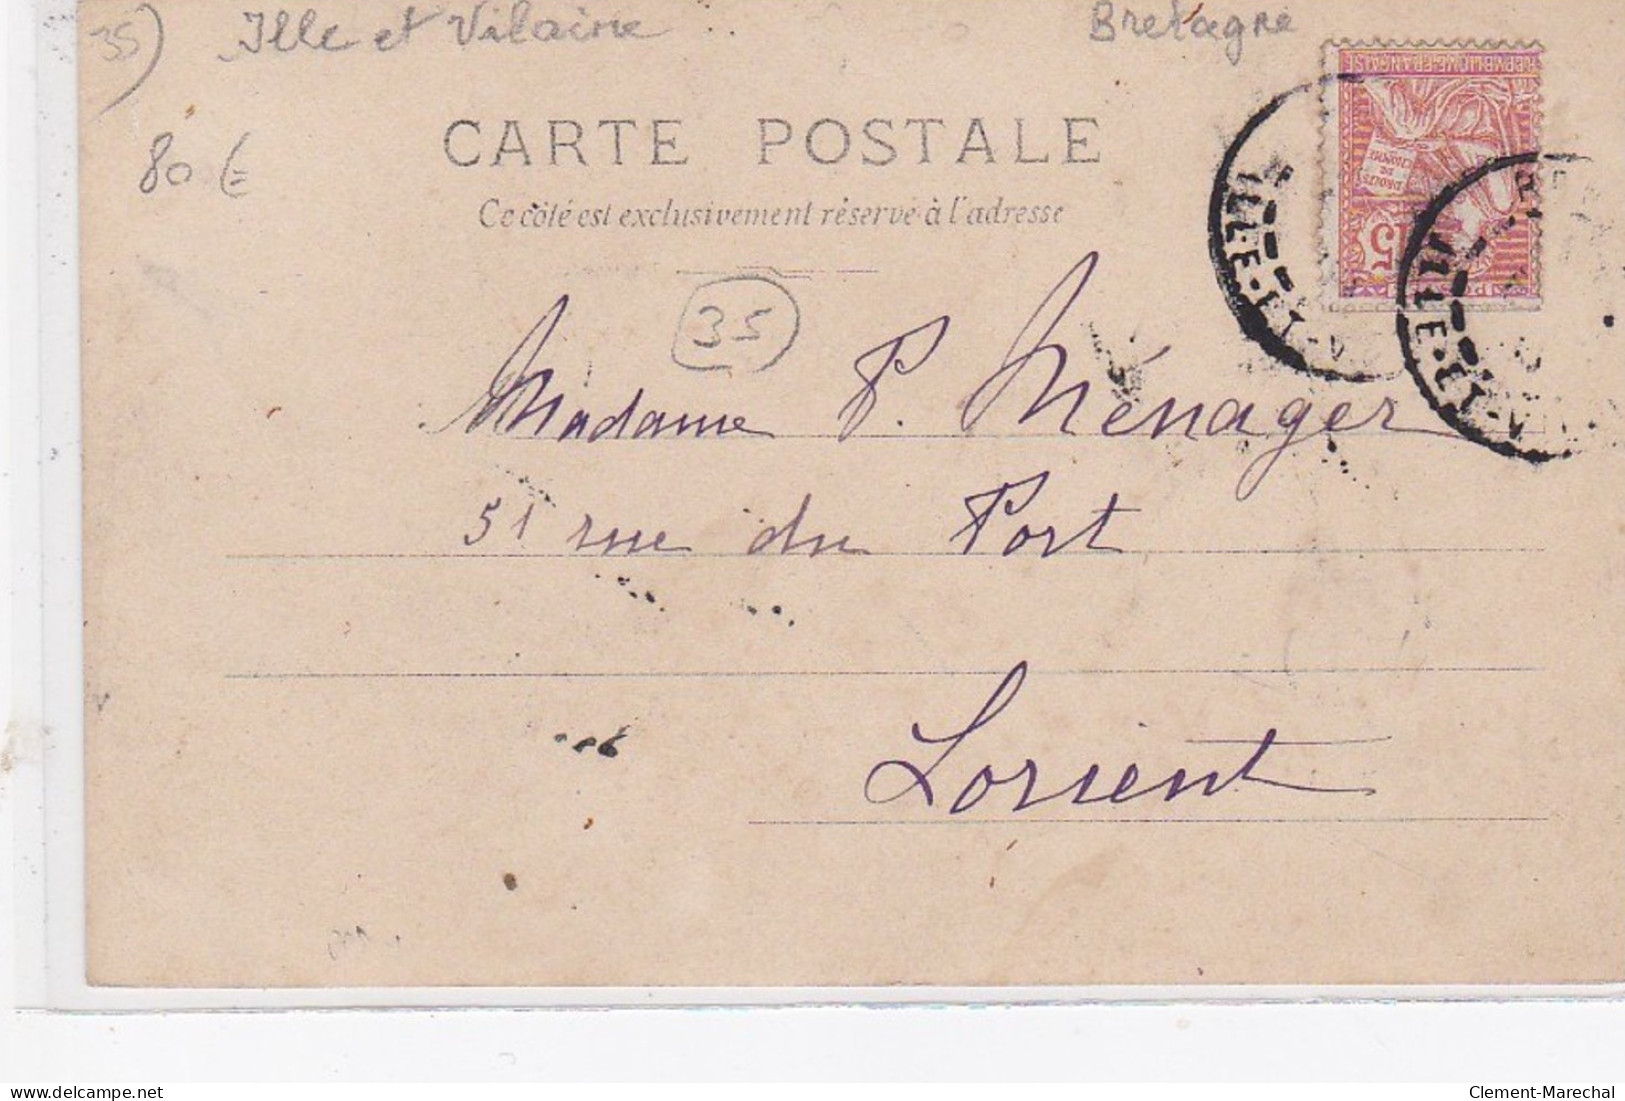 35) Ille et Vilaine
Bretagne
80 €
CARTE POSTALE
Ce côté est exclusivement réservé à l'adresse
35
REPUBLIQUE FRANÇAISE
DROITS
DE
L'HOMME
15
ILLE-ET-
ILLE-ET-
Madame P. Ménager
51 rue du Port
Lorient
delcampe.net
Clement-Marechal